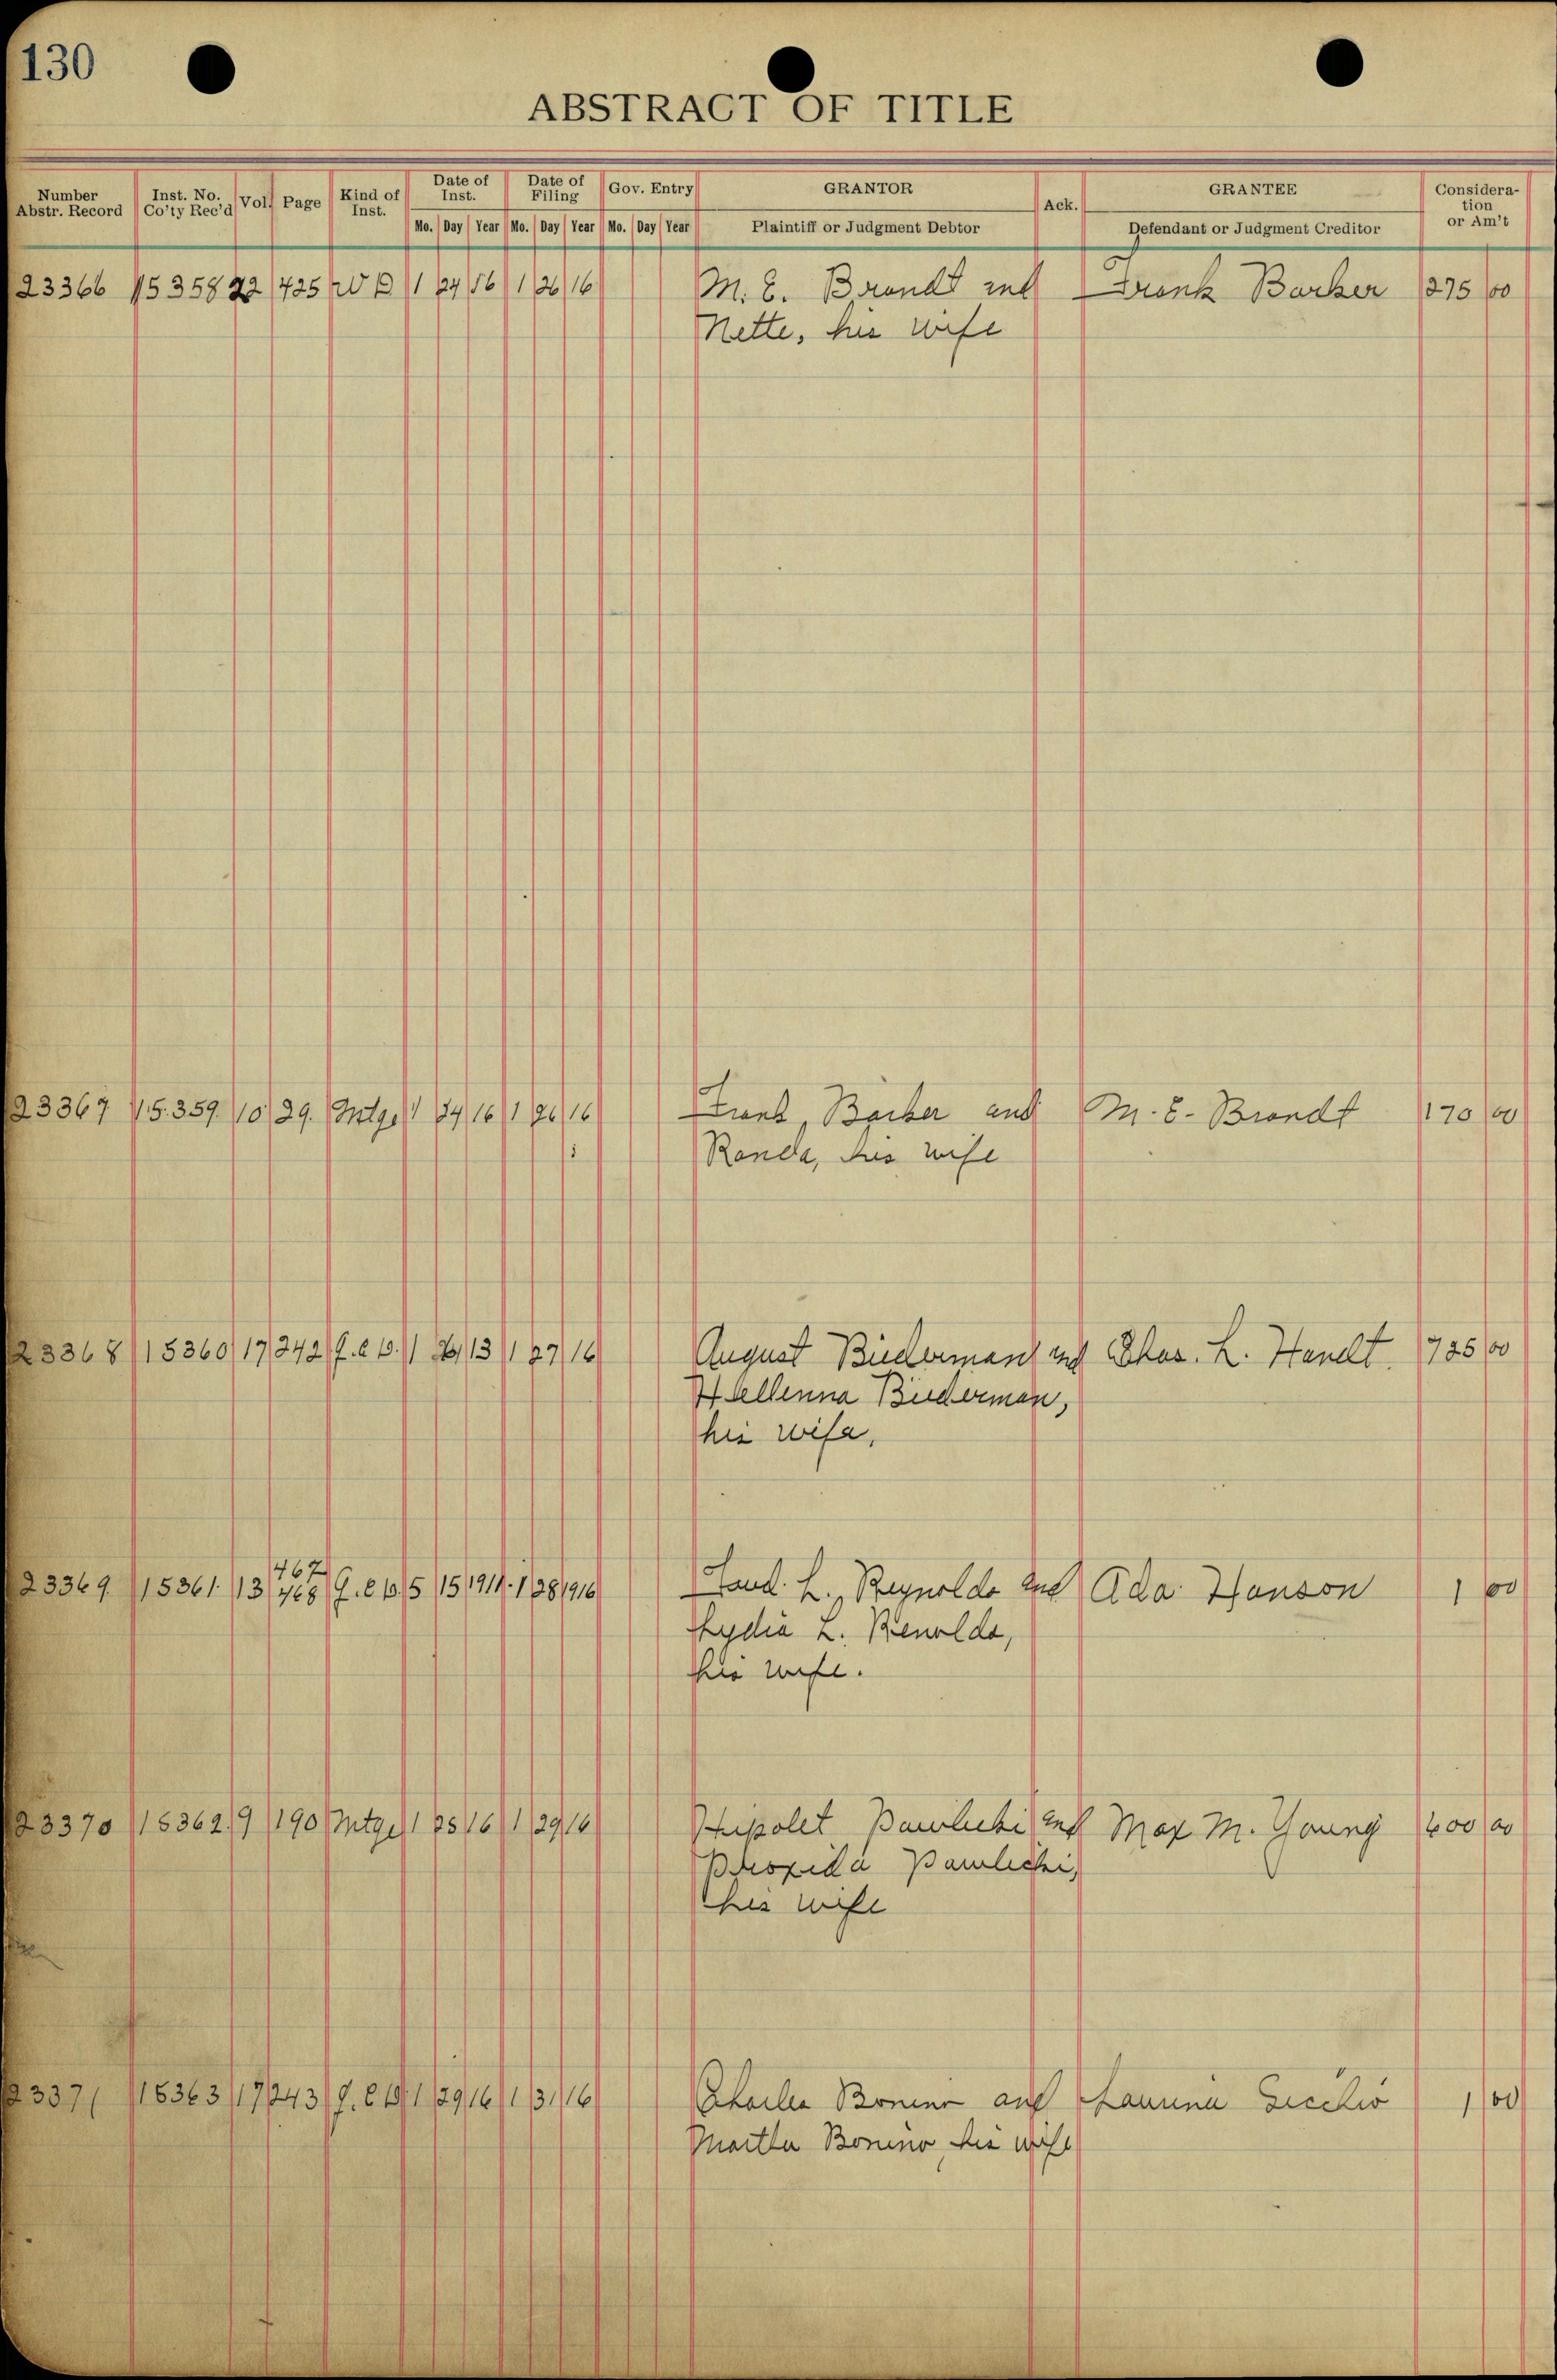 130
ABSTRACT OF TITLE
Number Abstr. Record | Inst. No. Co'ty Rec'd | Vol. | Page | Kind of Inst. | Date of Inst. | Date of Filing | Gov. Entry | GRANTOR | Ack. | GRANTEE | Consideration or Am't
Mo. Day Year Mo. Day Year Mo. Day Year | Plaintiff or Judgment Debtor | Defendant or Judgment Creditor
23366 15358 22 425 W D 1 24 16 1 26 16 M. E. Brandt and Frank Barker 275 00
Nette, his wife
23367 15359 10 29. Mtge 1 24 16 1 26 16 Frank Barker and M. E. Brandt 170 00
Randa, his wife
23368 15360 17 242 Q.C.D. 1 26 13 1 27 16 August Biederman and Chas. L. Handt. 725 00
Hellenna Biederman,
his wife,
467
23369 15361 13 468 Q.C.D. 5 15 1911 1 28 1916 L. Reynolds and Ada Hanson 1 00
Lydia L. Renolds,
his wife.
23370 15362 9 190 Mtge 1 25 16 1 29 16 Hipolet Pawlicki and Max M. Young 600 00
Pawlicki,
his wife
23371 15363 17 243 Q.C.D. 1 29 16 1 31 16 Charles Bonino and 1 00
Martha Bonino, his wife